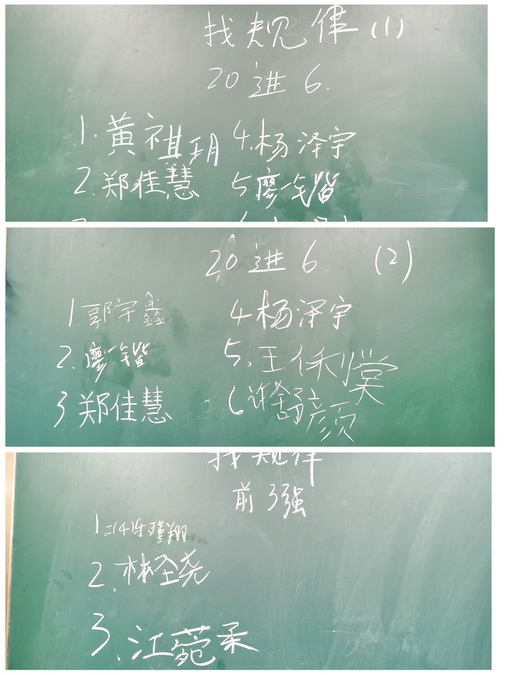 找规律(1)
20进6.
1.黄祺玥 4.杨泽宇
2.郑佳慧 5廖锴
20进6 (2)
1.郭宇鑫 4杨泽宇
2.廖锴 5.王
3郑佳慧 6.舒颜
找规律
前3强
1.
2.林圣尧
3.江菀柔